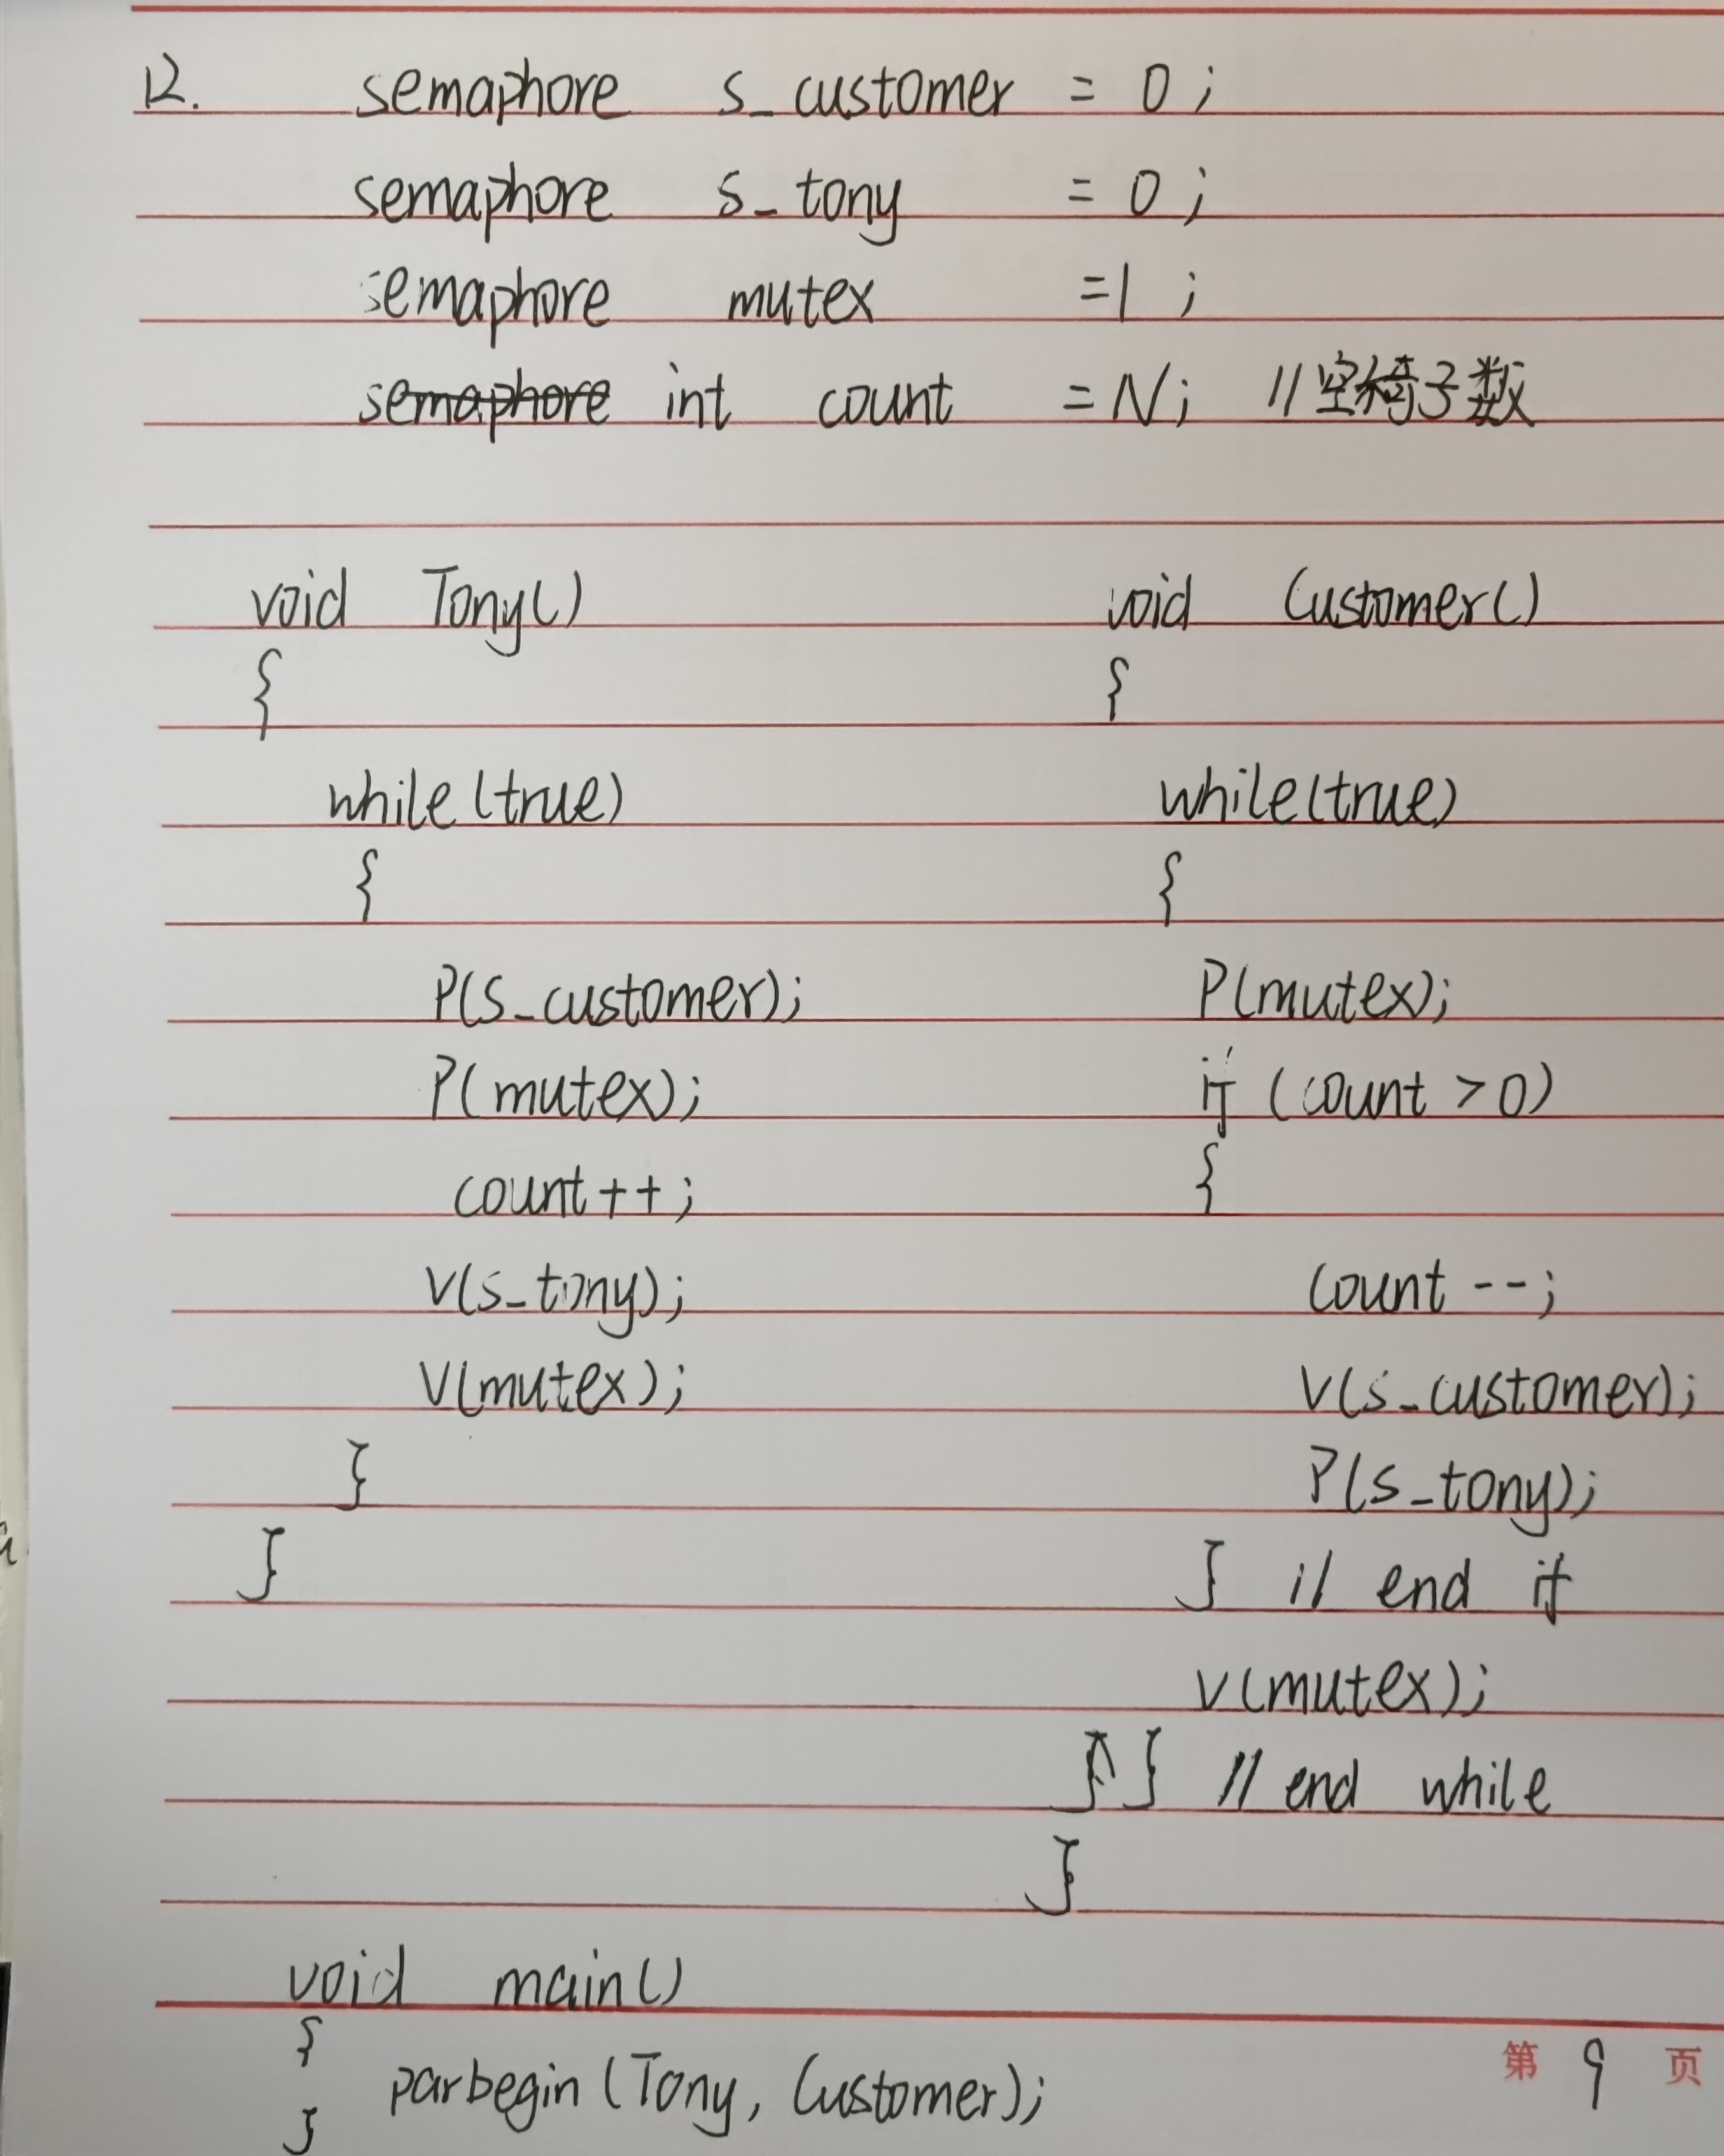 12. semaphore s_customer = 0;
semaphore s_tony = 0;
semaphore mutex = 1;
semaphore int count = N; //空椅子数
void Tony()
{
while(true)
{
P(s_customer);
P(mutex);
count++;
V(s_tony);
V(mutex);
}
}
void Customer()
{
while(true)
{
P(mutex);
if (count > 0)
{
count --;
V(s_customer);
P(s_tony);
} // end if
V(mutex);
} // end while
}
void main()
{
parbegin (Tony, Customer);
}
第 9 页